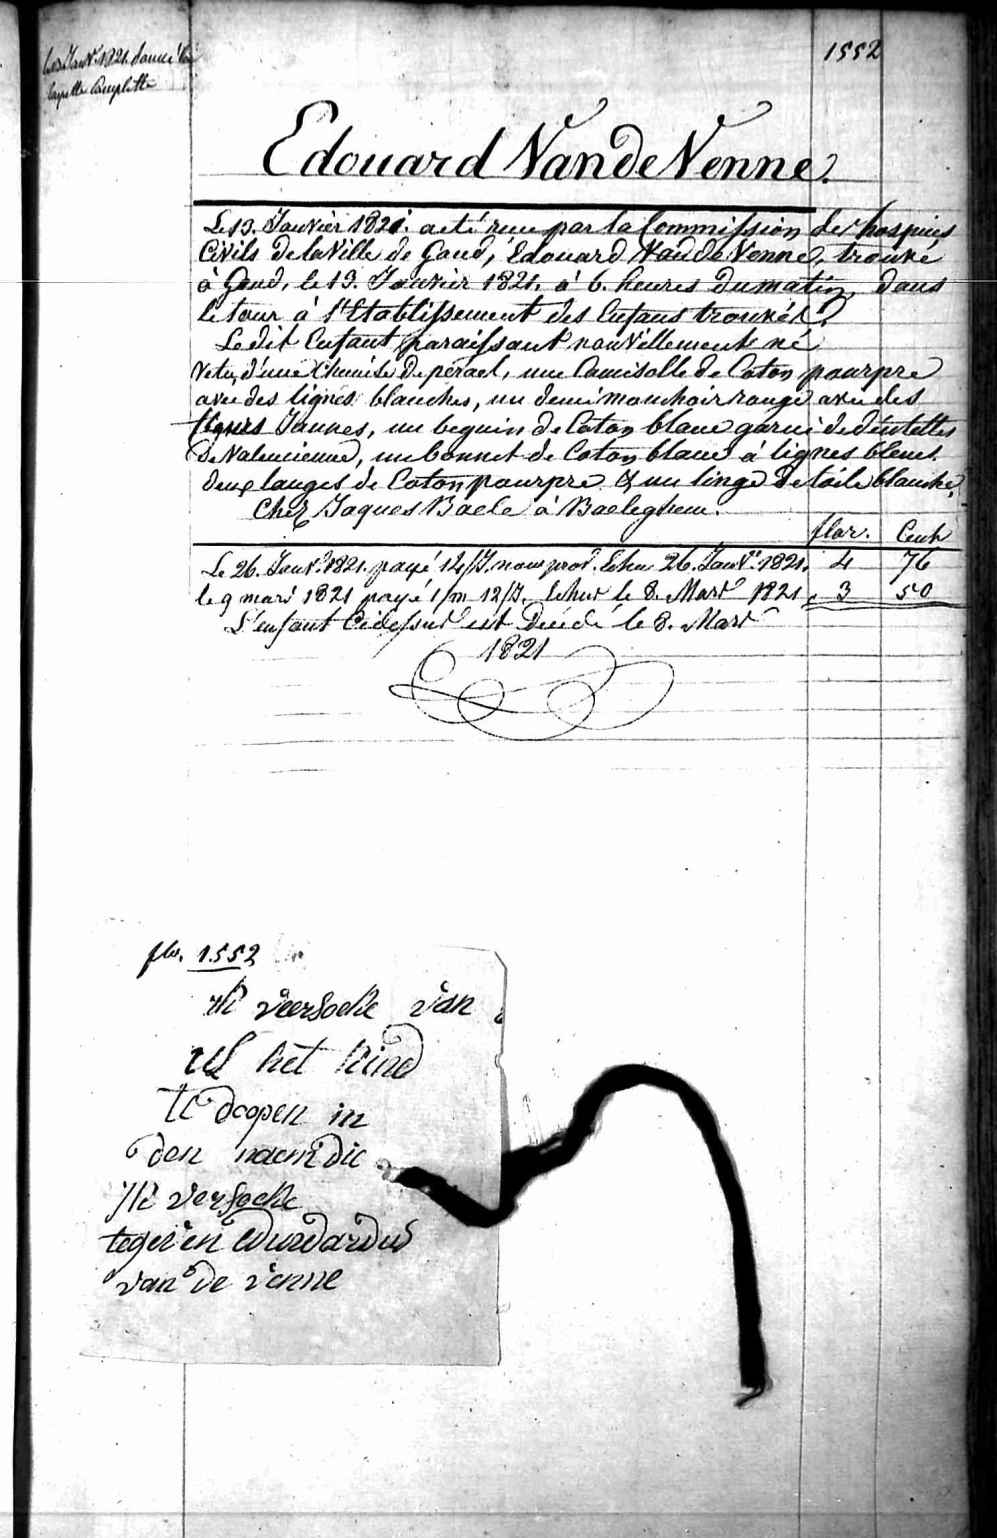 Janvr 1821. donné
layette Complette
1552
Edouard Van de Venne.
Le 13. Janvier 1821. a été reçu par la Commission des hospices
Civils de la Ville de Gand, Edouard Van de Venne, trouvé
à Gand, le 13. Janvier 1821. à 6. heures du matin, dans
le tour à l'Etablissement des Enfans trouvés.
Le dit Enfant paraissant nouvellement né
Vetu, d'une Chemise de percael, une Camisolle de Coton pourpre
avec des lignes blanches, un demi mouchoir rouge avec des
lignes Jaunes, un beguin de Coton blanc garni de dentelles
de Valencienne, un bonnet de Coton blanc à lignes bleues.
deux langes de Coton pourpre & un linge de toile blanche.
Chez Jaques Baele à Baeleghem.
flor. Cents
Le 26. Janvr. 1821. payé 14/J. nour prov. Echeu 26. Janvr. 1821. 4 76
le 9 mars 1821 payé 1/m 12/J. echut le 8. Mars 1821. 3 50
L'enfant Cidessus est Décédé le 8. Mars
1821
flo. 1552
ik veersoeke van
UL het kind
te doopen in
den naem die
ik versoeke
tegeven Eduwardus
van de venne